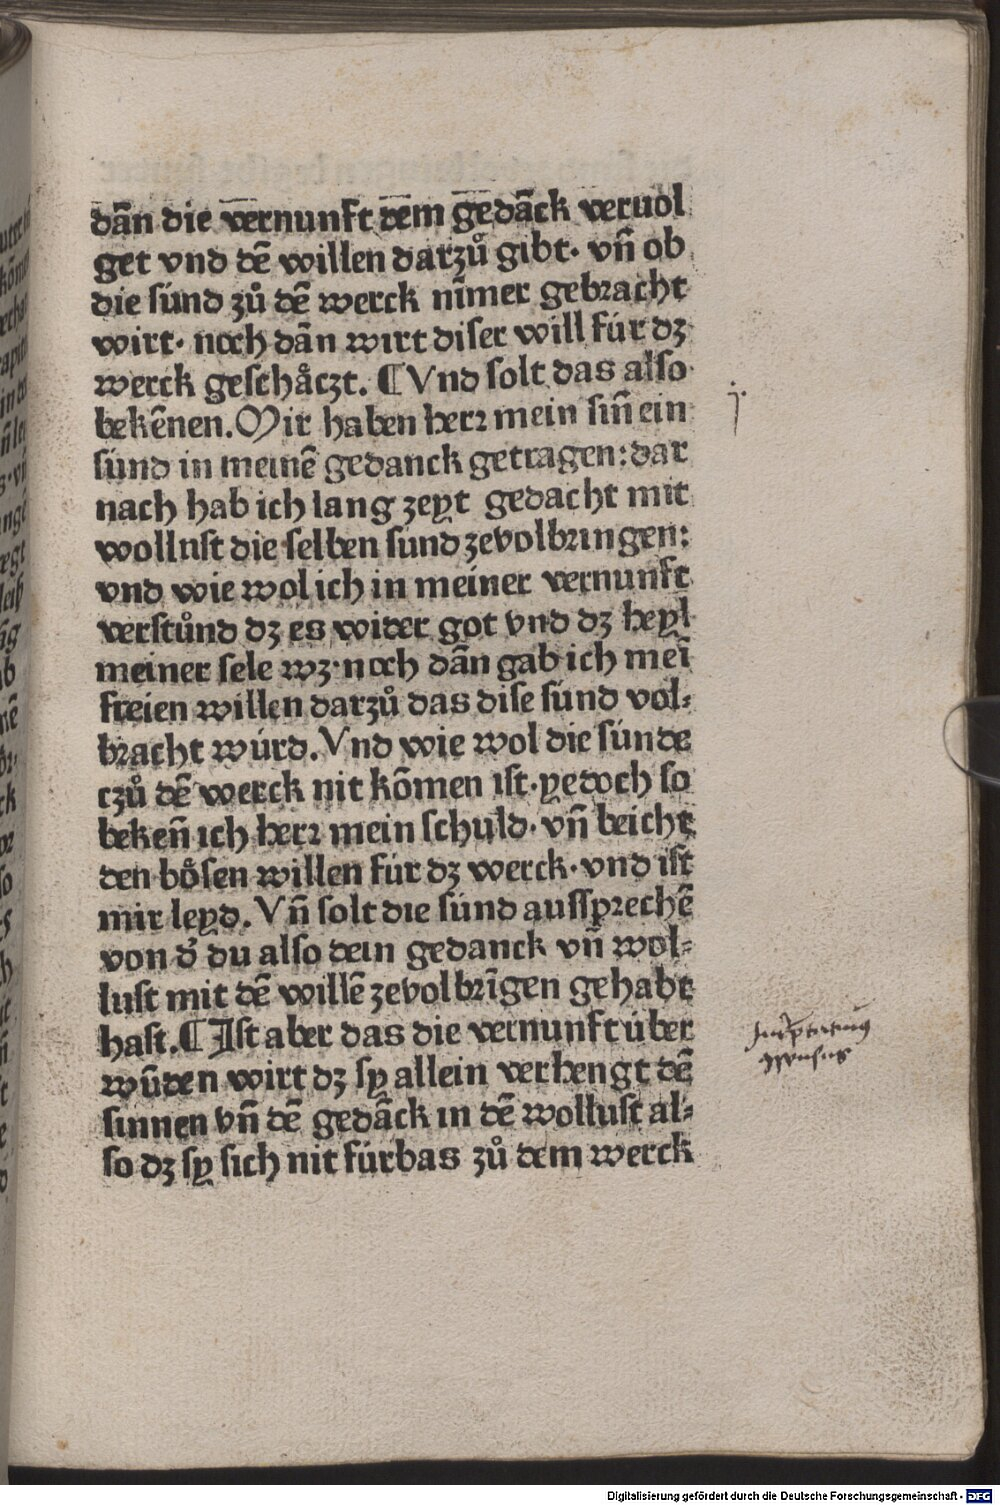 dãn die vernunft dem gedãck veruol
get vnd dẽ willen darzů gibt· vñ ob
die sünd zů dẽ werck nĩmer gebracht
wirt· noch dãn wirt diser will für dz
werck geschåczt. ¶ Vnd solt das also
bekẽnen. Mir haben herr mein siñ ein
sünd in meinẽ gedanck getragen: dar
nach hab ich lang zeyt gedacht mit
wollust die selben sünd zevolbringen:
vnd wie wol ich in meiner vernunft
verstůnd dz es wider got vnd dz heyl
meiner sele wz· noch dãn gab ich meĩ
freien willen darzů das dise sünd vol⸗
bracht würd. Vnd wie wol die sünde
czů dẽ werck nit kõmen ist· yedoch so
bekeñ ich herr mein schuld· vñ beicht
den bösen willen für dz werck· vnd ist
mir leyd. Vñ solt die sünd aussprechẽ
von d̾ du also dein gedanck vñ wol⸗
lust mit dẽ willẽ zevolbrĩgen gehabt
hast. ¶ Ist aber das die vernunft über
wũden wirt dz sy allein verhengt dẽ
sinnen vñ dẽ gedãck in dẽ wollust al⸗
so dz sy sich nit fürbas zů dem werck
Digitalisierung gefördert durch die Deutsche Forschungsgemeinschaft - DFG